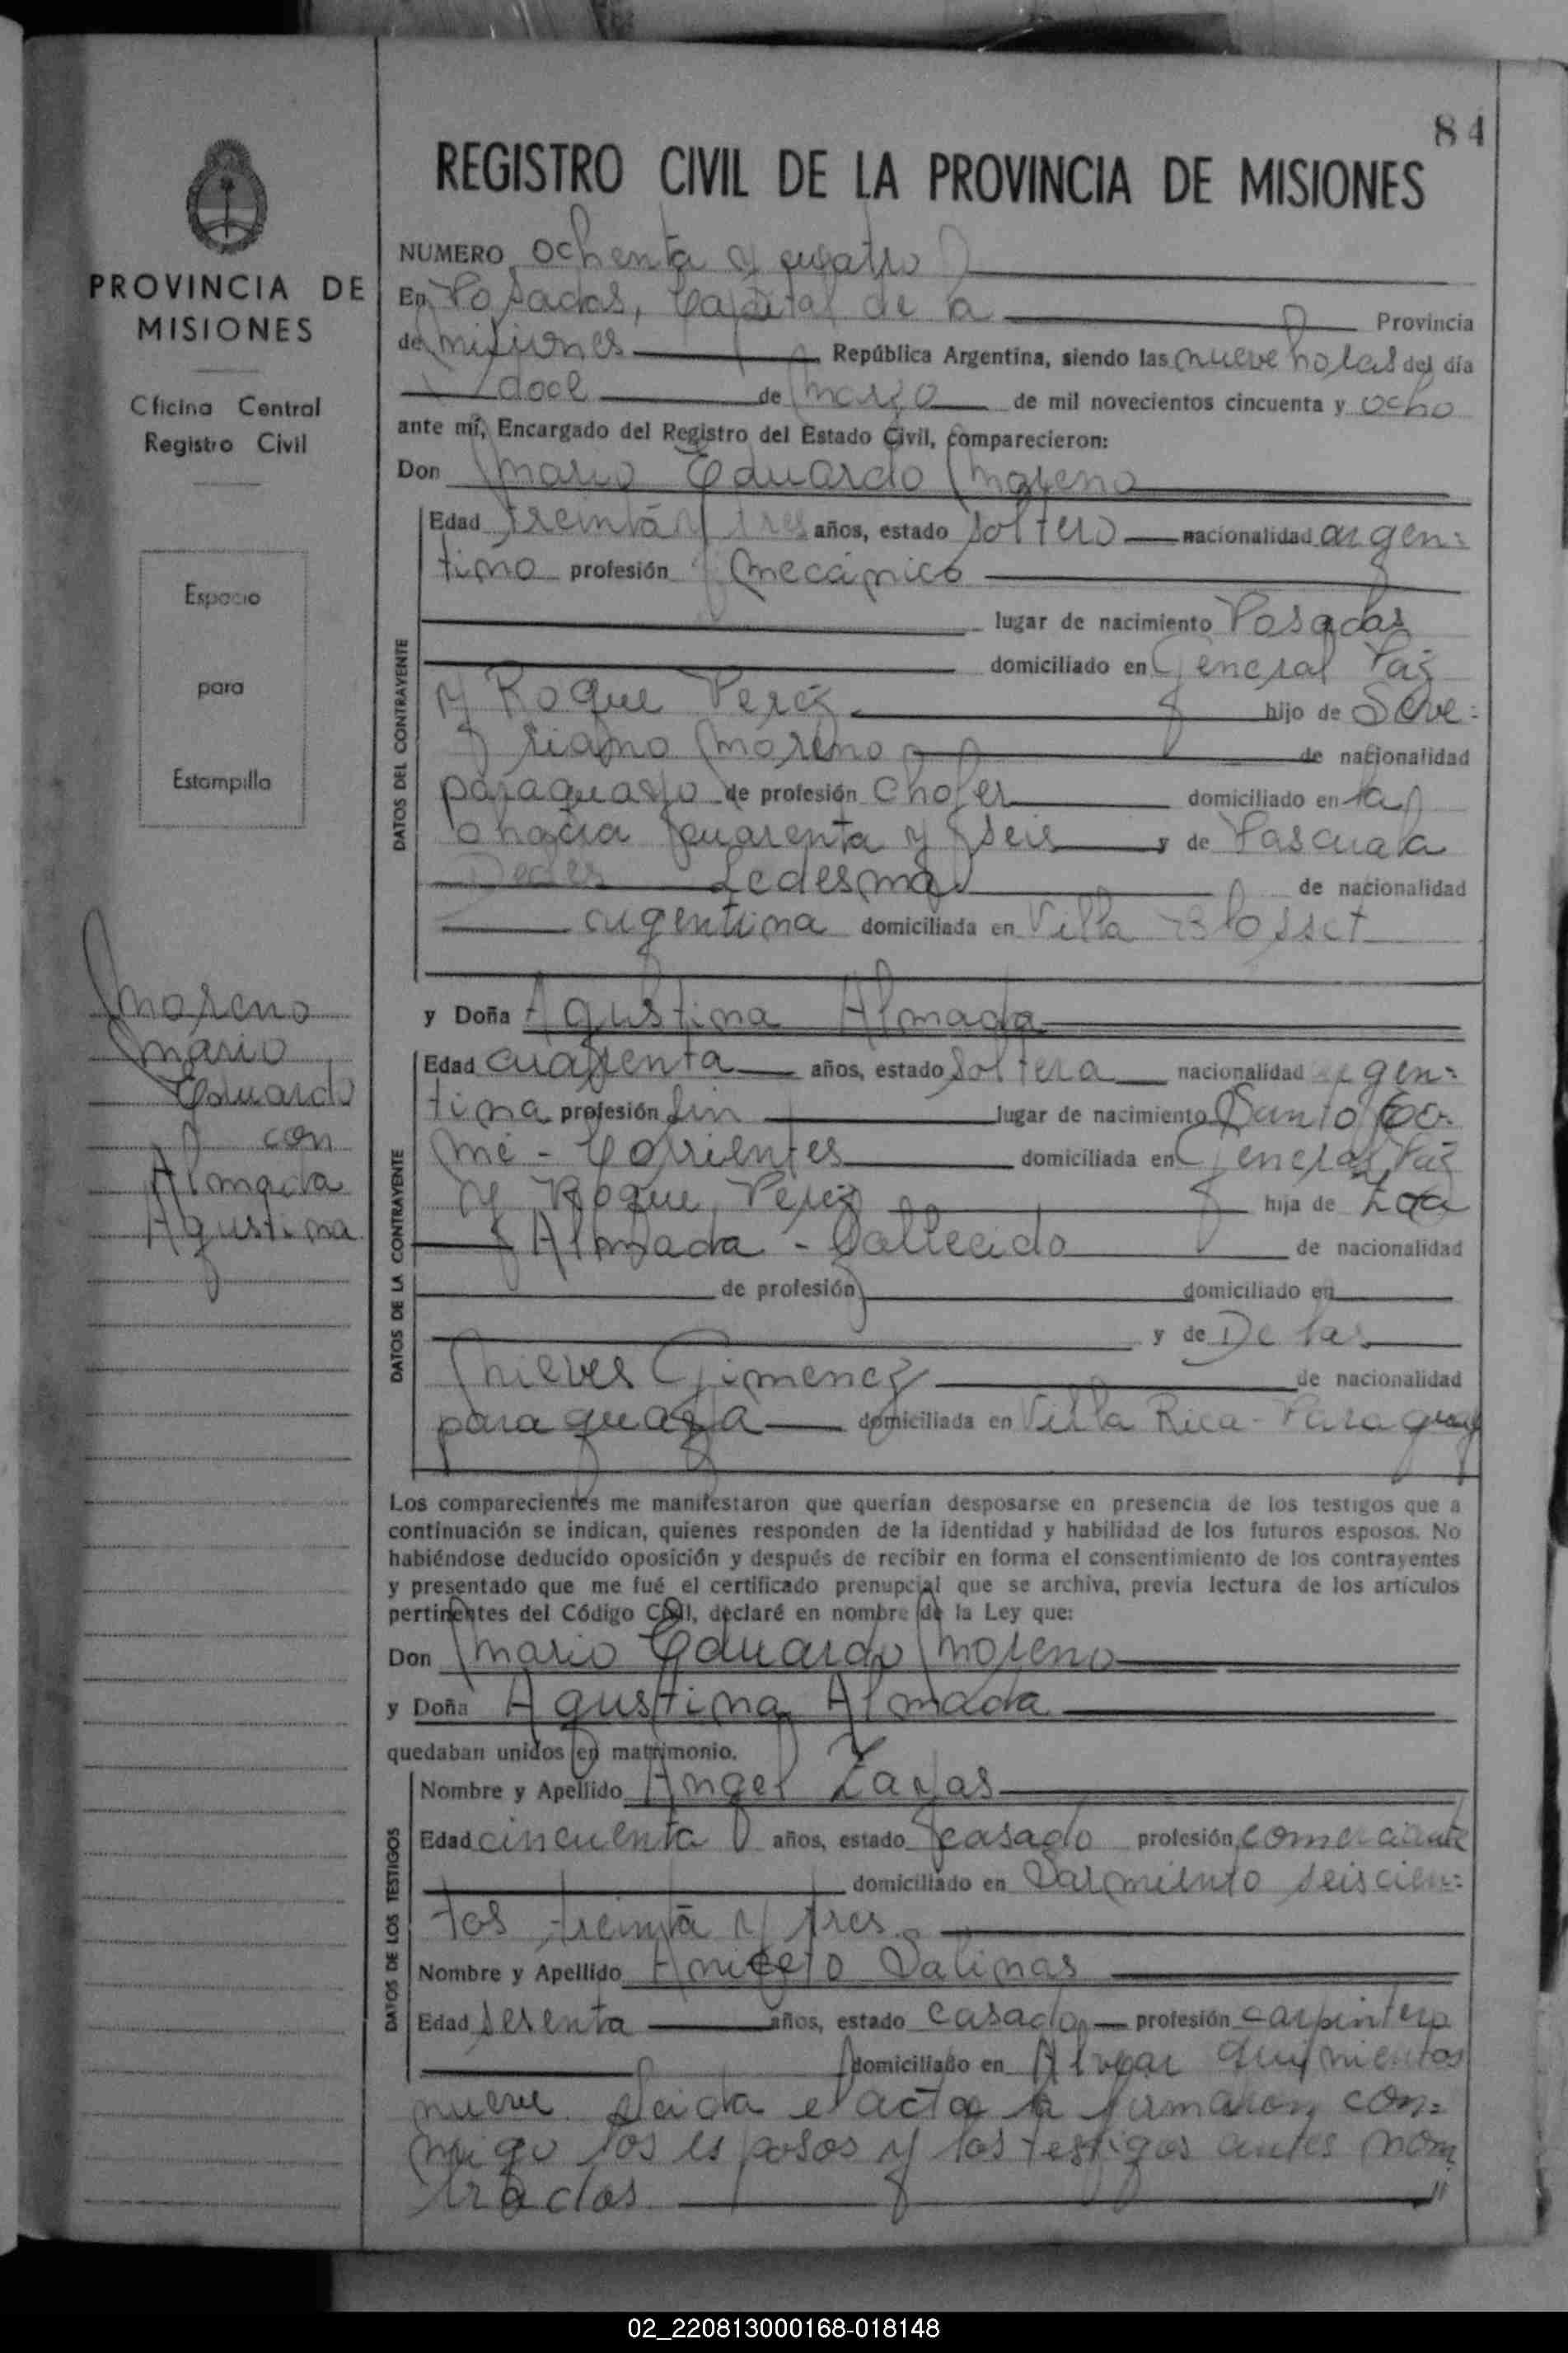 84
REGISTRO CIVIL DE LA PROVINCIA DE MISIONES
PROVINCIA DE
MISIONES
Oficina Central
Registro Civil
Espacio
para
Estampilla
Moreno
Mario
Eduardo
con
Almada
Agustina
NUMERO ochenta y cuatro
En Posadas, Capital de la Provincia
de Misiones República Argentina, siendo las nueve horas del día
doce de Marzo de mil novecientos cincuenta y ocho
ante mí, Encargado del Registro del Estado Civil, comparecieron:
Don Mario Eduardo Moreno
DATOS DEL CONTRAYENTE
Edad treinta y tres años, estado soltero nacionalidad argen=
tino profesión mecánico
lugar de nacimiento Posadas
domiciliado en General Paz
y Roque Perez hijo de Seve=
riano Moreno de nacionalidad
paraguayo de profesión chofer domiciliado en la
chacra cuarenta y seis y de Pascuala
Ledesma de nacionalidad
argentina domiciliada en Villa Blosset
y Doña Agustina Almada
DATOS DE LA CONTRAYENTE
Edad cuarenta años, estado soltera nacionalidad argen=
tina profesión sin lugar de nacimiento Santo To-
mé - Corrientes domiciliada en General Paz
y Roque Perez hija de
Almada - fallecido de nacionalidad
de profesión domiciliado en
y de De las
Nieves Gimenez de nacionalidad
paraguaya domiciliada en Villa Rica - Paraguay
Los comparecientes me manifestaron que querían desposarse en presencia de los testigos que a
continuación se indican, quienes responden de la identidad y habilidad de los futuros esposos. No
habiéndose deducido oposición y después de recibir en forma el consentimiento de los contrayentes
y presentado que me fué el certificado prenupcial que se archiva, previa lectura de los artículos
pertinentes del Código Civil, declaré en nombre de la Ley que:
Don Mario Eduardo Moreno
y Doña Agustina Almada
quedaban unidos en matrimonio.
DATOS DE LOS TESTIGOS
Nombre y Apellido Angel Zayas
Edad cincuenta años, estado casado profesión comerciante
domiciliado en Sarmiento seiscien=
tos treinta y tres.
Nombre y Apellido Aniceto Salinas
Edad sesenta años, estado casado profesión carpintero
domiciliado en Alvear quinientos
nueve. Leida el acta la firmaron con=
migo los esposos y los testigos antes nom
brados
02_220813000168-018148